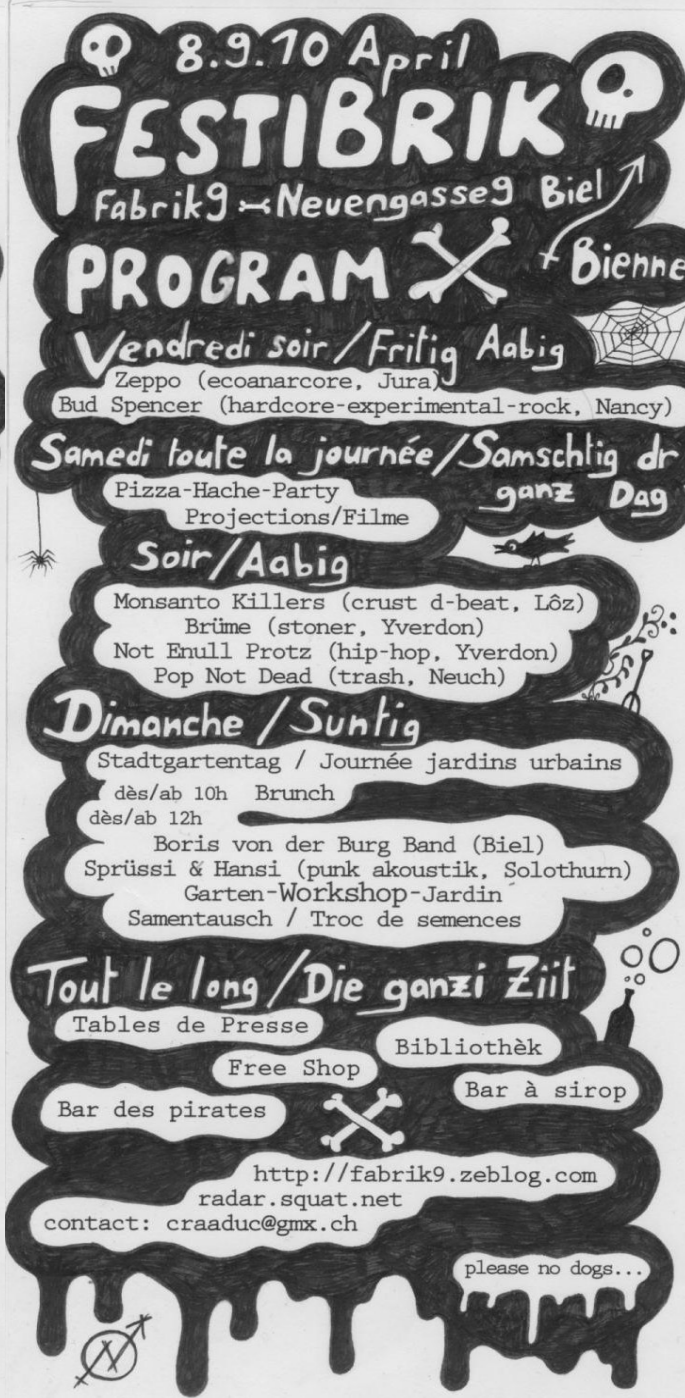 8.9.10 April
FESTIBRIK
Fabrik9 Neuengasse9 Biel
PROGRAM
+ Bienne
Vendredi soir / Fritig Aabig
Zeppo (ecoanarcore, Jura)
Bud Spencer (hardcore-experimental-rock, Nancy)
Samedi toute la journée / Samschtig dr
ganz Dag
Pizza-Hache-Party
Projections/Filme
Soir/Aabig
Monsanto Killers (crust d-beat, Lôz)
Brüme (stoner, Yverdon)
Not Enull Protz (hip-hop, Yverdon)
Pop Not Dead (trash, Neuch)
Dimanche / Suntig
Stadtgartentag / Journée jardins urbains
dès/ab 10h Brunch
dès/ab 12h
Boris von der Burg Band (Biel)
Sprüssi & Hansi (punk akoustik, Solothurn)
Garten-Workshop-Jardin
Samentausch / Troc de semences
Tout le long / Die ganzi Ziit
Tables de Presse
Bibliothèk
Free Shop
Bar à sirop
Bar des pirates
http://fabrik9.zeblog.com
radar.squat.net
contact: craaduc@gmx.ch
please no dogs...